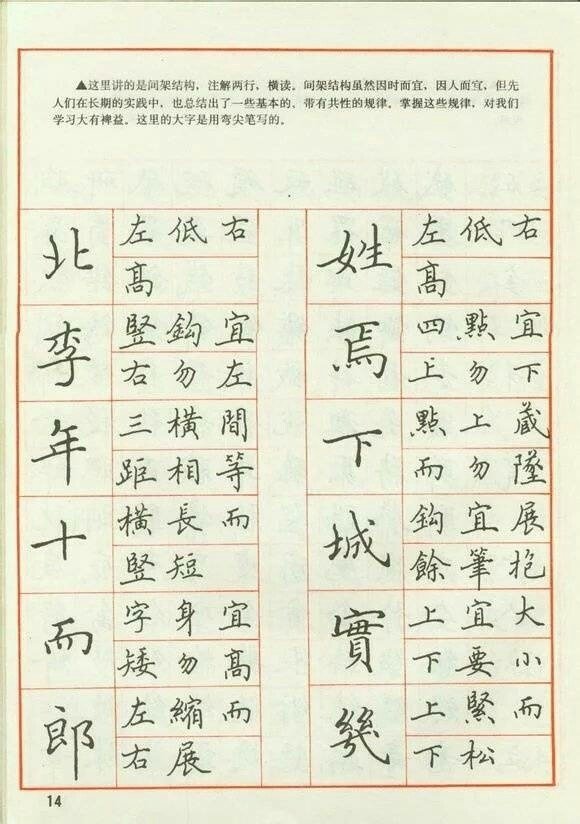 ▲这里讲的是间架结构，注解两行，横读。间架结构虽然因时而宜，因人而宜，但先
人们在长期的实践中，也总结出了一些基本的、带有共性的规律。掌握这些规律，对我们
学习大有裨益。这里的大字是用弯尖笔写的。
北
左低右
髙
李
竪鈎宜
右勿左
年
三横間
距相等
十
横長而
竪短
而
字身宜
矮勿髙
郎
左縮而
右展
姓
左低右
髙
焉
四點宜
上勿下
下
點上蔵
而勿墜
城
鈎宜展
餘筆抱
實
上宜大
下要小
幾
上緊而
下松
14